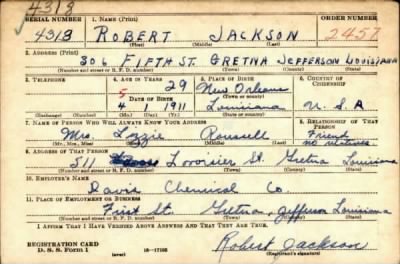 4318
SERIAL NUMBER 1. NAME (Print) ORDER NUMBER
4318 ROBERT JACKSON 2457
(First) (Middle) (Last)
2. ADDRESS (Print)
306 FIFTH ST. GRETNA JEFFERSON LOUISIANA
(Number and street or R. F. D. number) (Town) (County) (State)
3. TELEPHONE 4. AGE IN YEARS 5. PLACE OF BIRTH 6. COUNTRY OF CITIZENSHIP
29 New Orleans
5 DATE OF BIRTH (Town or county)
4 1 1911 Louisiana U. S. A
(Mo.) (Day) (Yr.) (State or country)
7. NAME OF PERSON WHO WILL ALWAYS KNOW YOUR ADDRESS 8. RELATIONSHIP OF THAT PERSON
Mrs. Lizzie Roussell Friend
no relatives
(Mr., Mrs., Miss) (First) (Middle) (Last)
9. ADDRESS OF THAT PERSON
511 St. Gretna Louisiana
(Number and street or R. F. D. number) (Town) (County) (State)
10. EMPLOYER'S NAME
Davis Chemical Co.
11. PLACE OF EMPLOYMENT OR BUSINESS
First St. Gretna, Jefferson Louisiana
(Number and street or R. F. D. number) (Town) (County) (State)
I AFFIRM THAT I HAVE VERIFIED ABOVE ANSWERS AND THAT THEY ARE TRUE.
REGISTRATION CARD
D. S. S. Form 1 (over) Robert Jackson
(Registrant's signature)